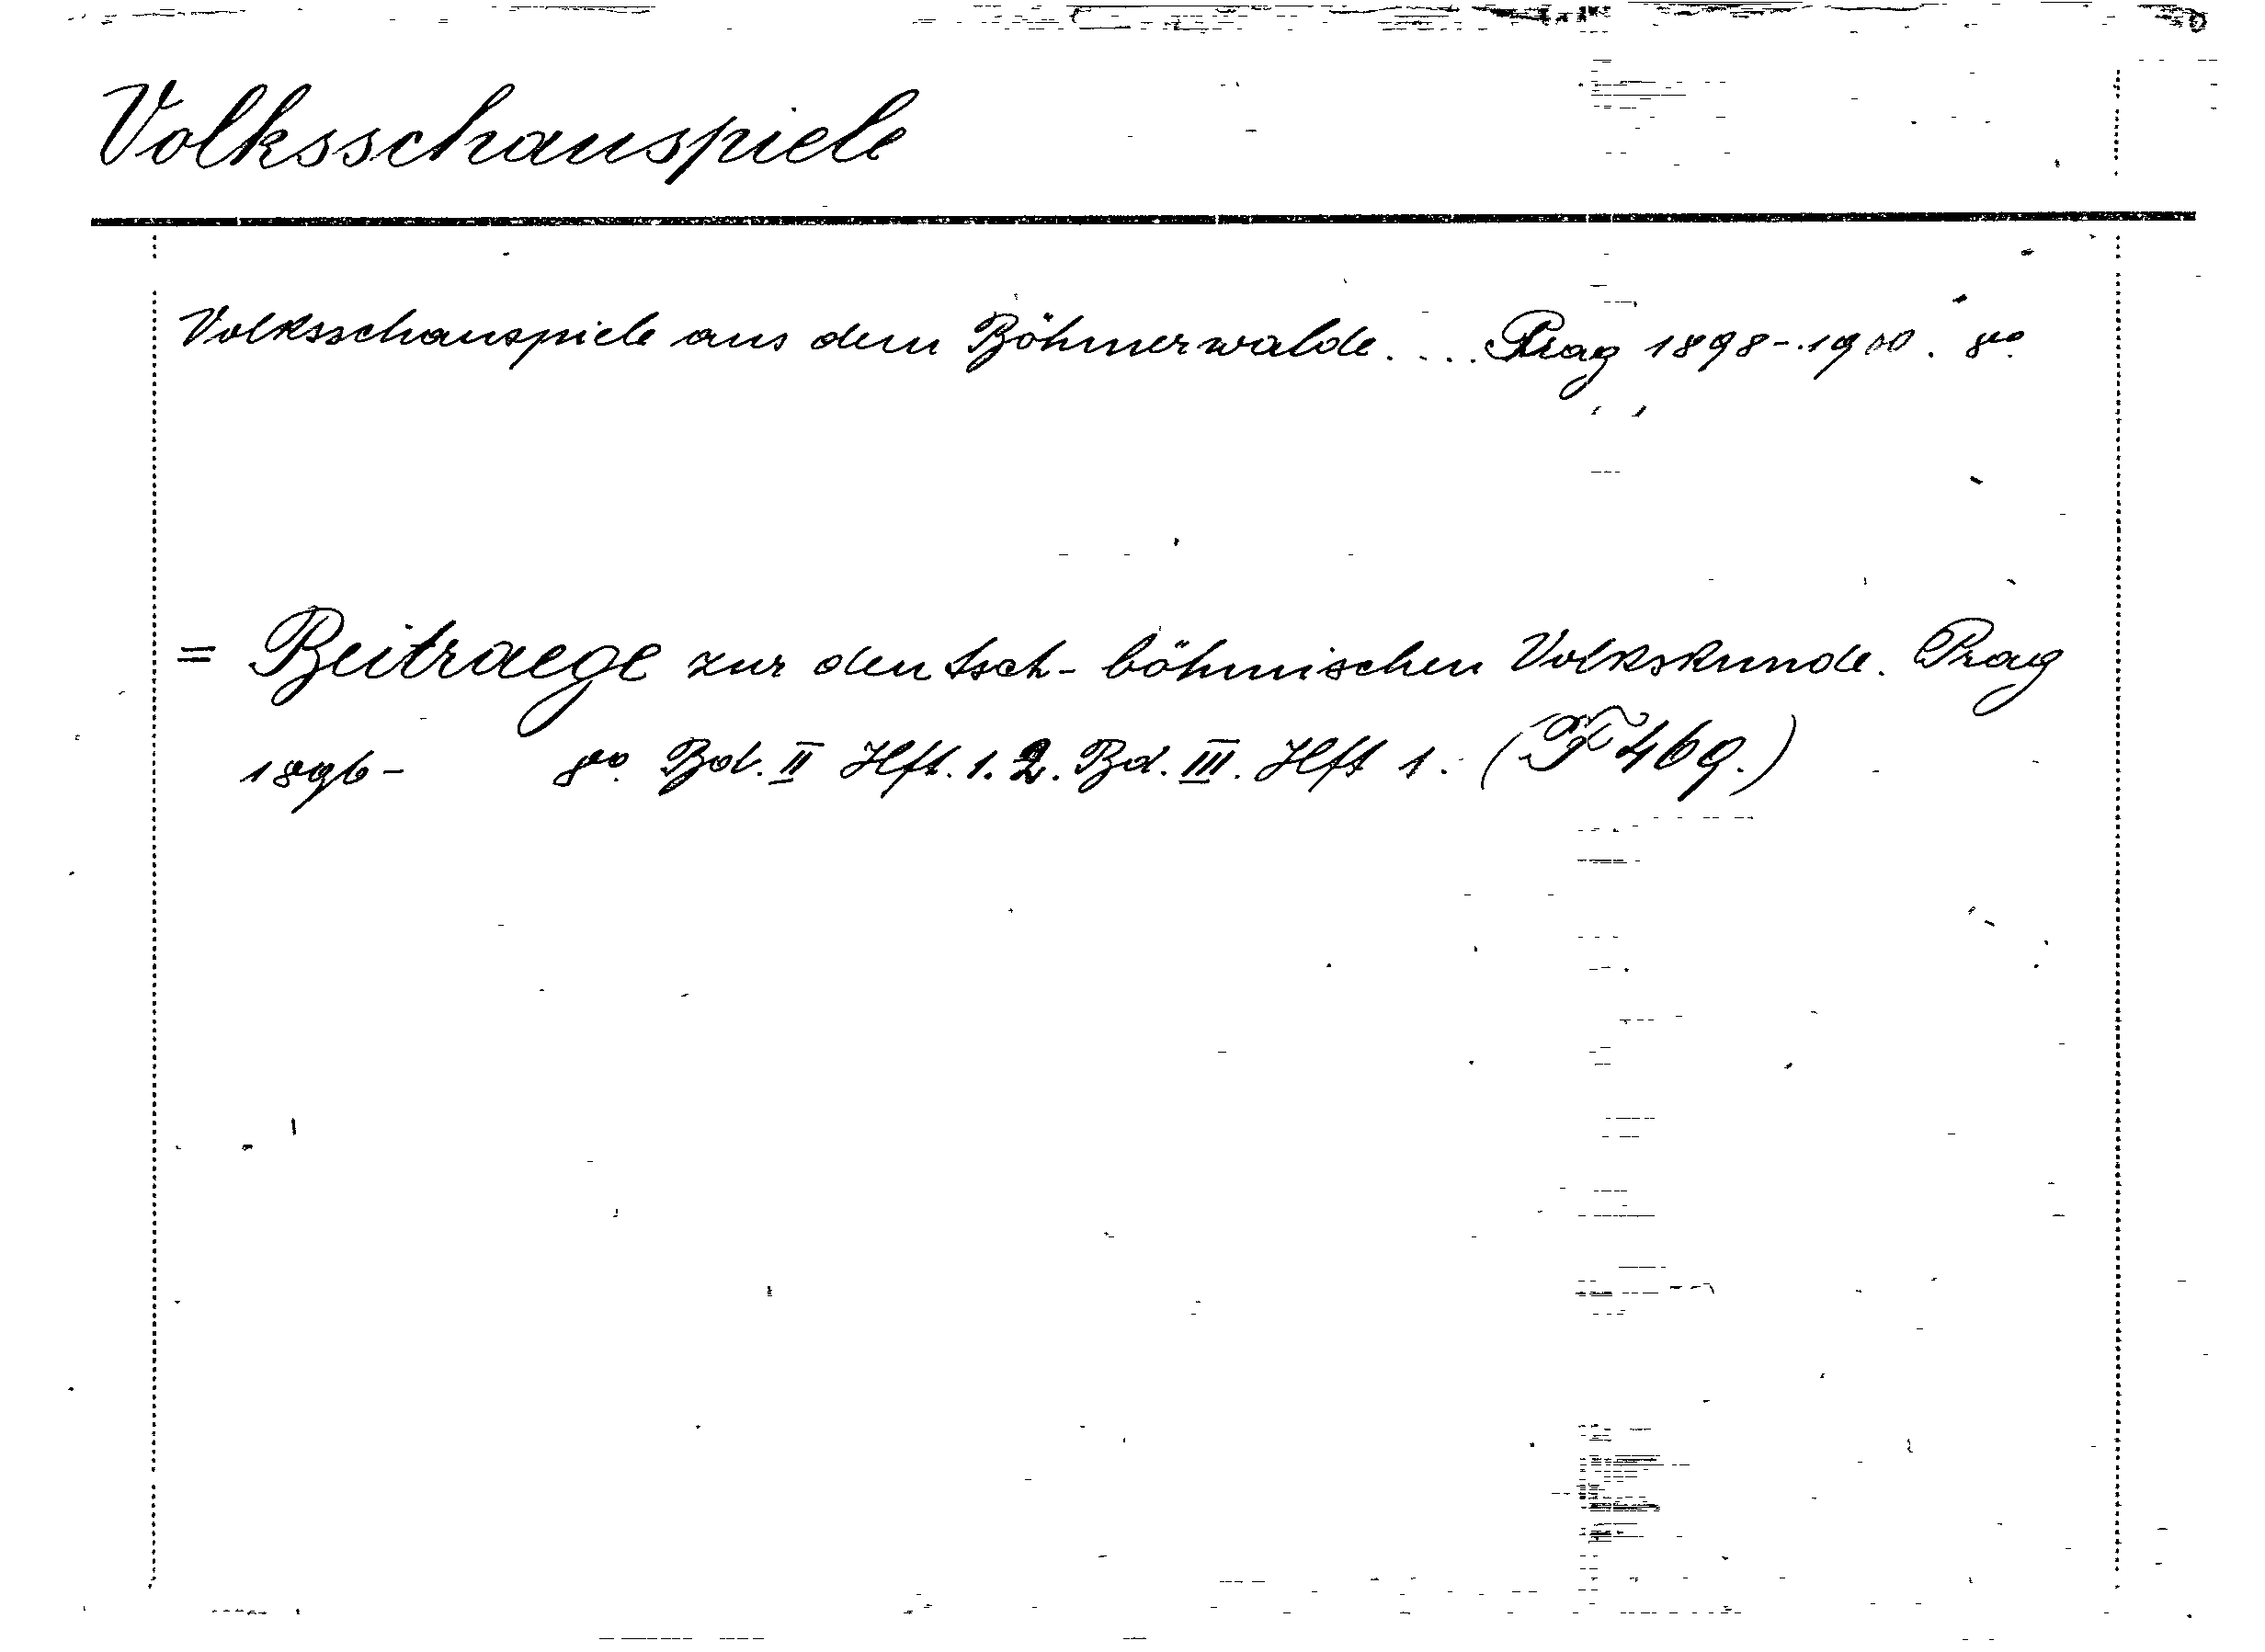 Volksschauspiele
Volksschauspiele aus dem Böhmerwalde. ... Prag 1898-1900. 8vo.
= Beitraege zur deutsch-böhmischen Volkskunde. Prag
1896- 8vo. Bd. II Hft. 1.2. Bd. III. Hft 1. (F 469.)